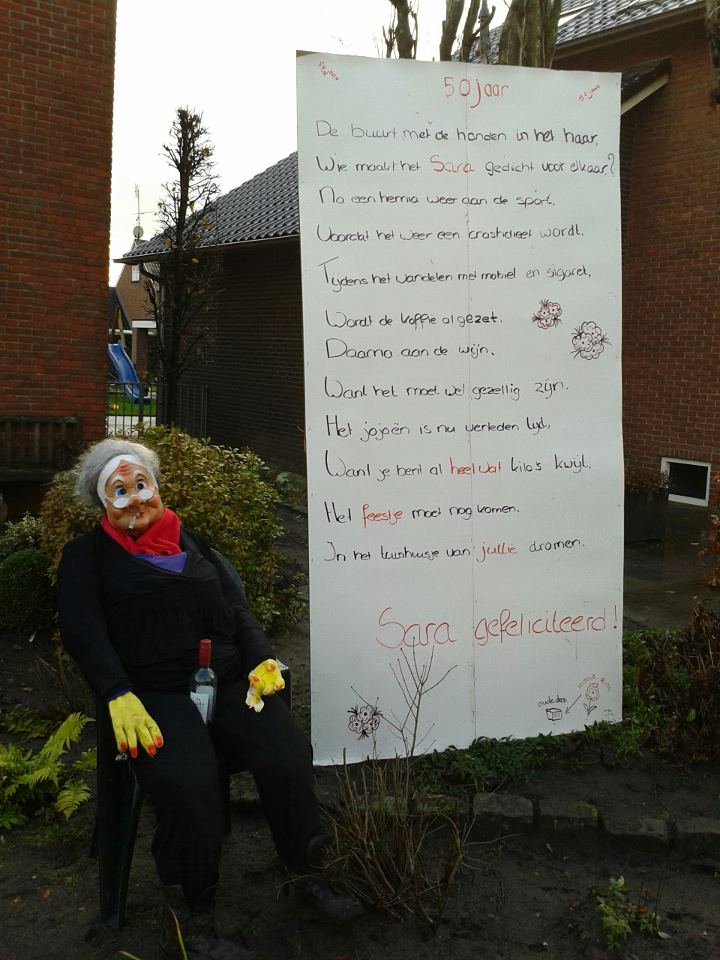 50 jaar
50 jaar
De buurt met de handen in het haar,
Wie maakt het Sara gedicht voor elkaar?
Na een hernia weer aan de sport,
Voordat het weer een crashdieet wordt.
Tijdens het wandelen met mobiel en sigaret,
Wordt de koffie al gezet.
Daarna aan de wijn,
Want het moet wel gezellig zijn.
Het jojoën is nu verleden tijd,
Want je bent al heel wat kilo's kwijt.
Het feestje moet nog komen.
In het tuinhuisje van jullie dromen.
Sara gefeliciteerd!
oude doos